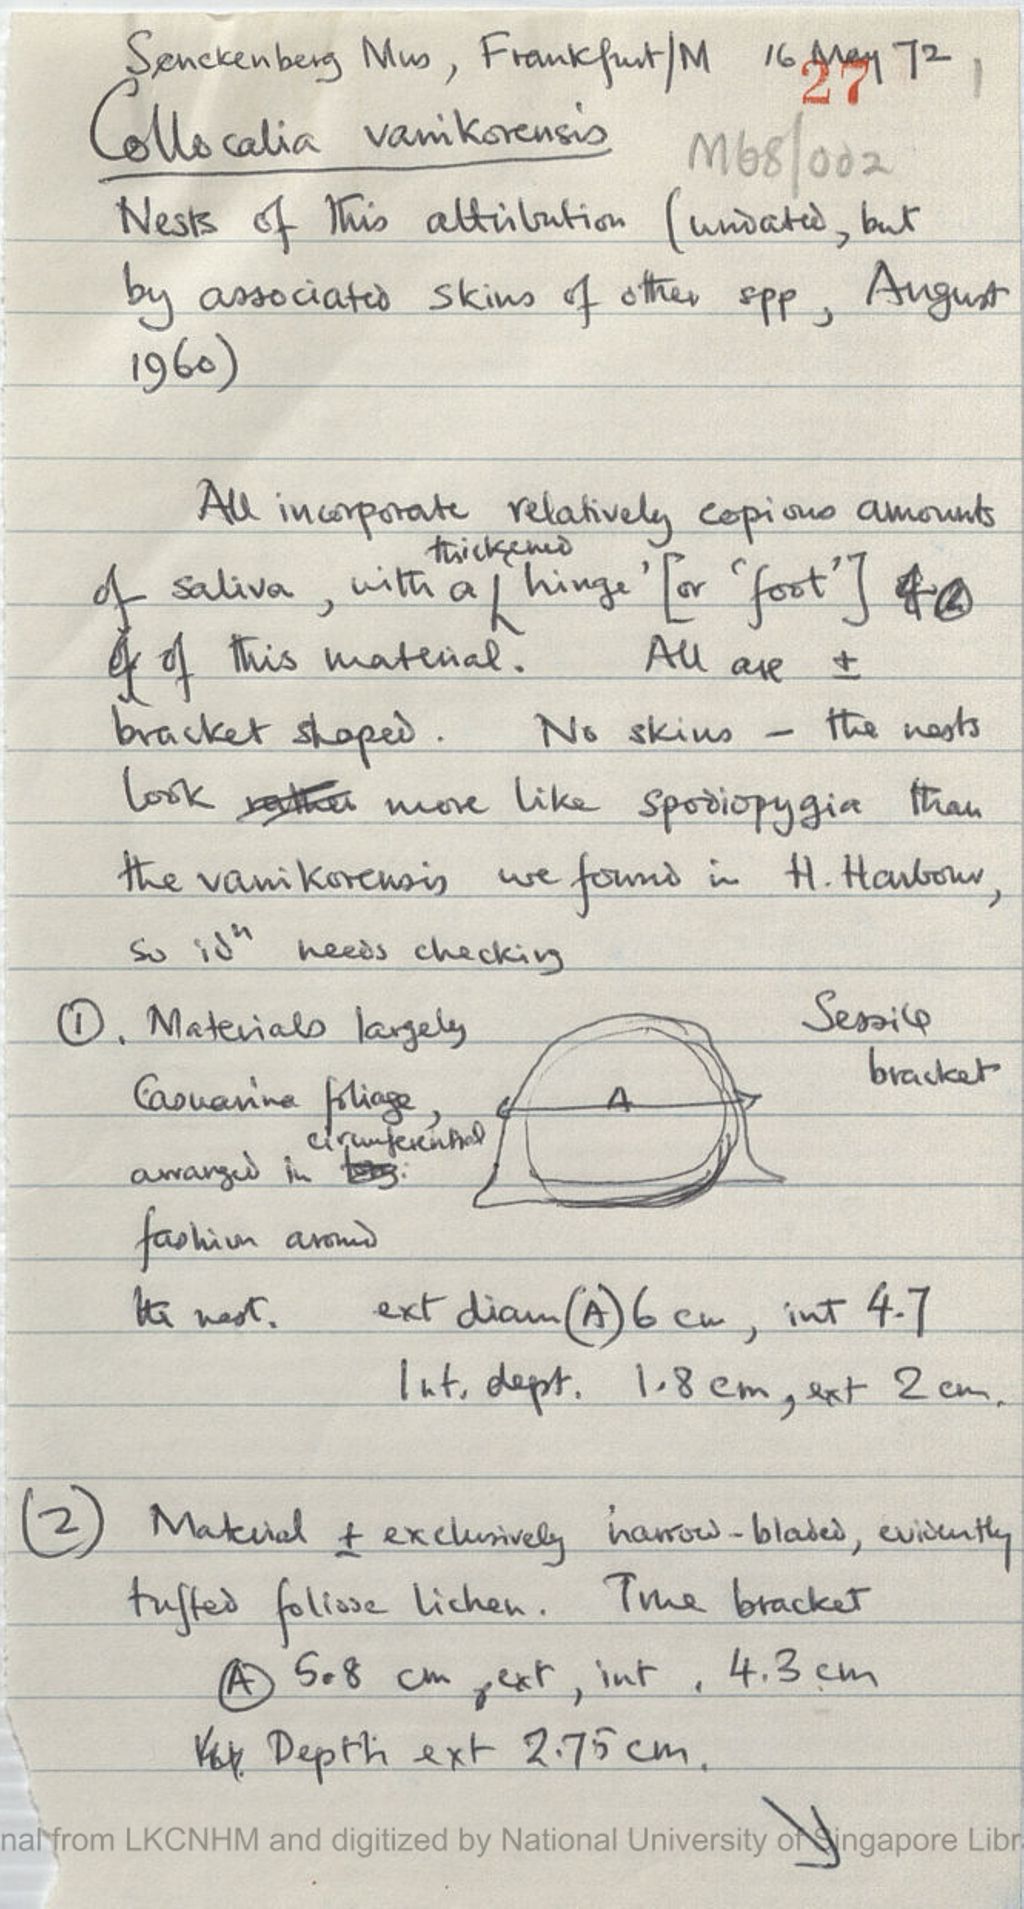 Senckenberg Mus, Frankfurt/M 16 May 72
27
Collocalia vanikorensis
M68/002
Nests of this attribution (undated, but
by associated skins of other spp, August
1960)
All incorporate relatively copious amounts
thickened
of saliva, with a 'hinge' [or 'foot']
of this material. All are ±
bracket shaped. No skins – the nests
look rather more like spodiopygia than
the vanikorensis we found in H. Harbour,
so idⁿ needs checking
①. Materials largely
Sessile
bracket
Casuarina foliage,
A
circumferential
arranged in
fashion around
the nest. ext diam (A) 6 cm, int 4.7
Int. dept. 1.8 cm, ext 2 cm.
(2) Material ± exclusively narrow-bladed, evidently
tufted foliose lichen. True bracket
Ⓐ 5.8 cm, ext, int. 4.3 cm
Depth ext 2.75 cm.
nal from LKCNHM and digitized by National University of Singapore Libr